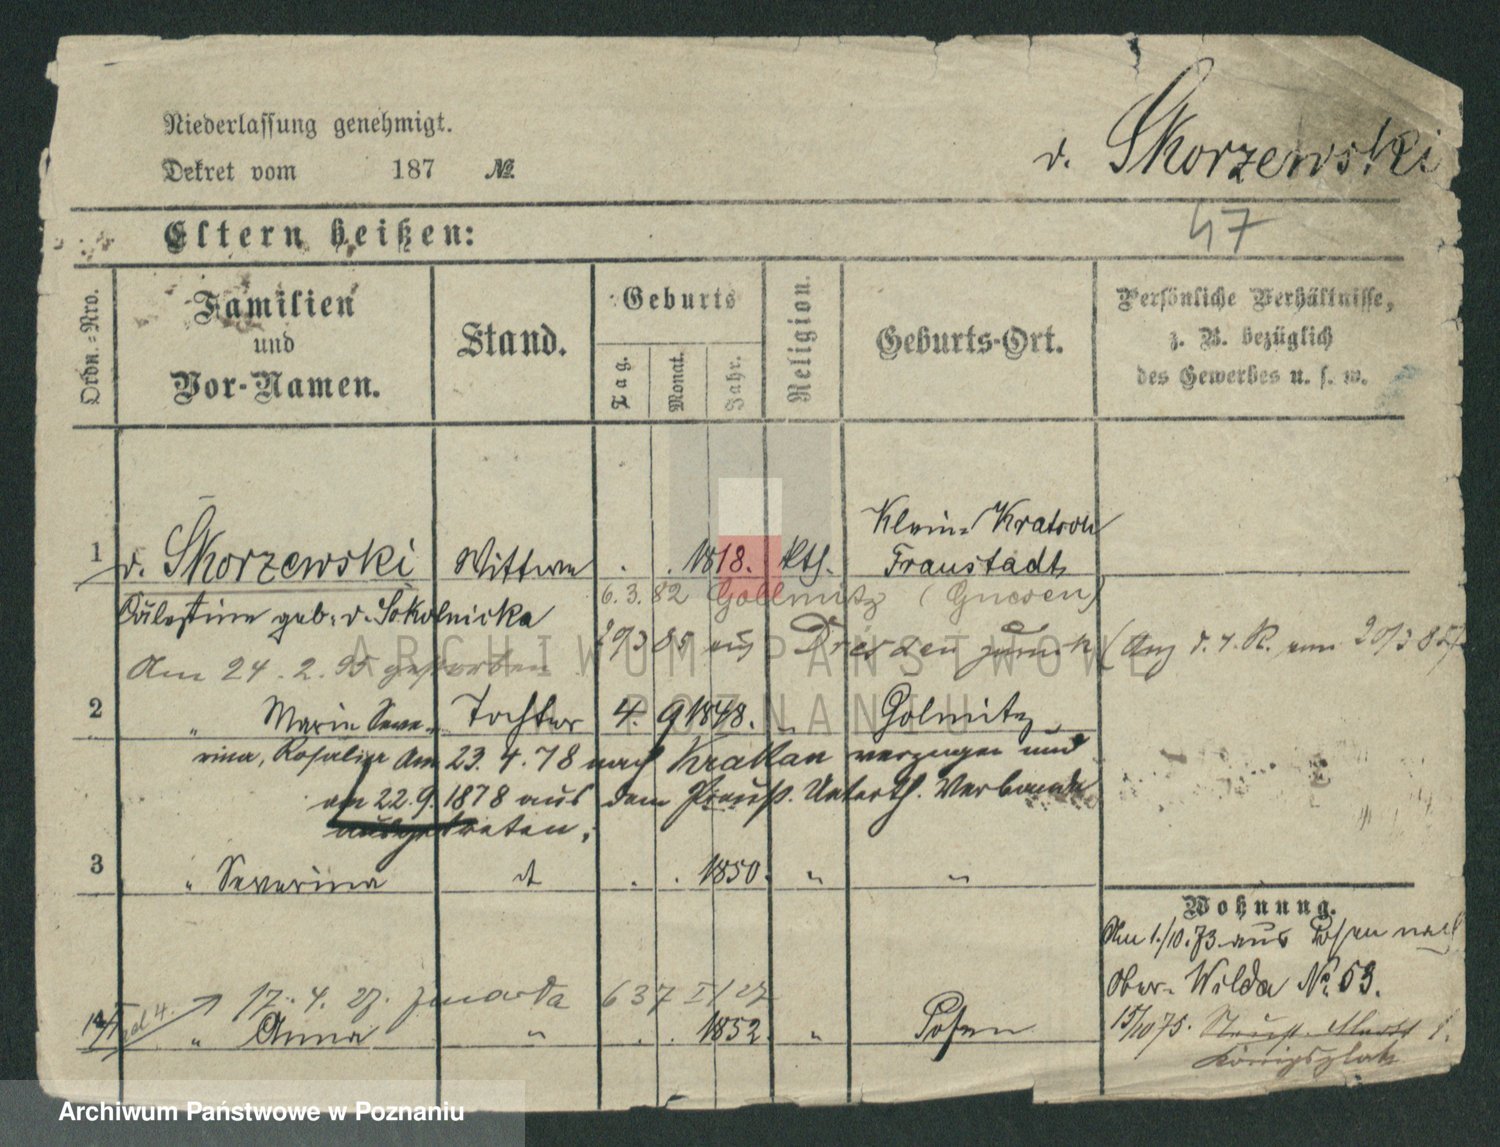 Niederlassung genehmigt.
Dekret vom 187 №
v. Skorzewski
47
Eltern heißen:
Ordn.=Nro.
Familien
und
Vor-Namen.
Stand.
Geburts
Tag.
Monat.
Jahr.
Religion.
Geburts-Ort.
Persönliche Verhältnisse,
z. B. bezüglich
des Gewerbes u. s. w.
1 v. Skorzewski Wittwe . . 1818. kth. Klein- Kratsch
Fraustadt
6.3.82 Gollmitz (Gnesen)
Cölestine geb: v. Sokolnicka
29/3 85 aus Dresden zurück (Anz d. 4. R. vom 20/3 85)
Am 24. 2. 95 gestorben
2 " Marie Seve- Tochter 4. 9 1848. " Golmitz
rina, Rosalia Am 23. 4. 78 nach Krakau verzogen und
am 22.9. 1878 aus dem Preuß. Unterth. Verbande
ausgetreten.
3 " Severina dt . . 1850. " "
Wohnung.
Am 1./10.73. aus Posen nach
Ober- Wilda № 53.
17. 4. 27. zmarła 637 I/27
4 " Anna " . . 1852. " Posen
15/10 75.
Königsplatz
ARCHIWUM PAŃSTWOWE
POZNANIU
Archiwum Państwowe w Poznaniu